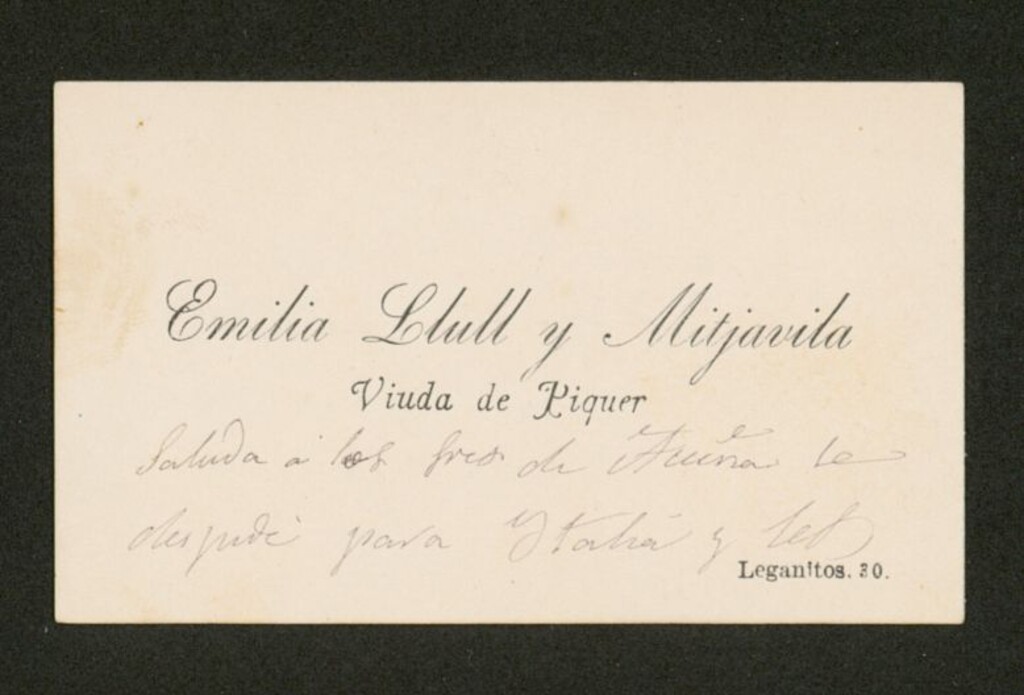 Emilia Llull y Mitjavila
Viuda de Piquer
Saluda a los Sres de Acuña se
despide para Ytalia y les
Leganitos. 30.